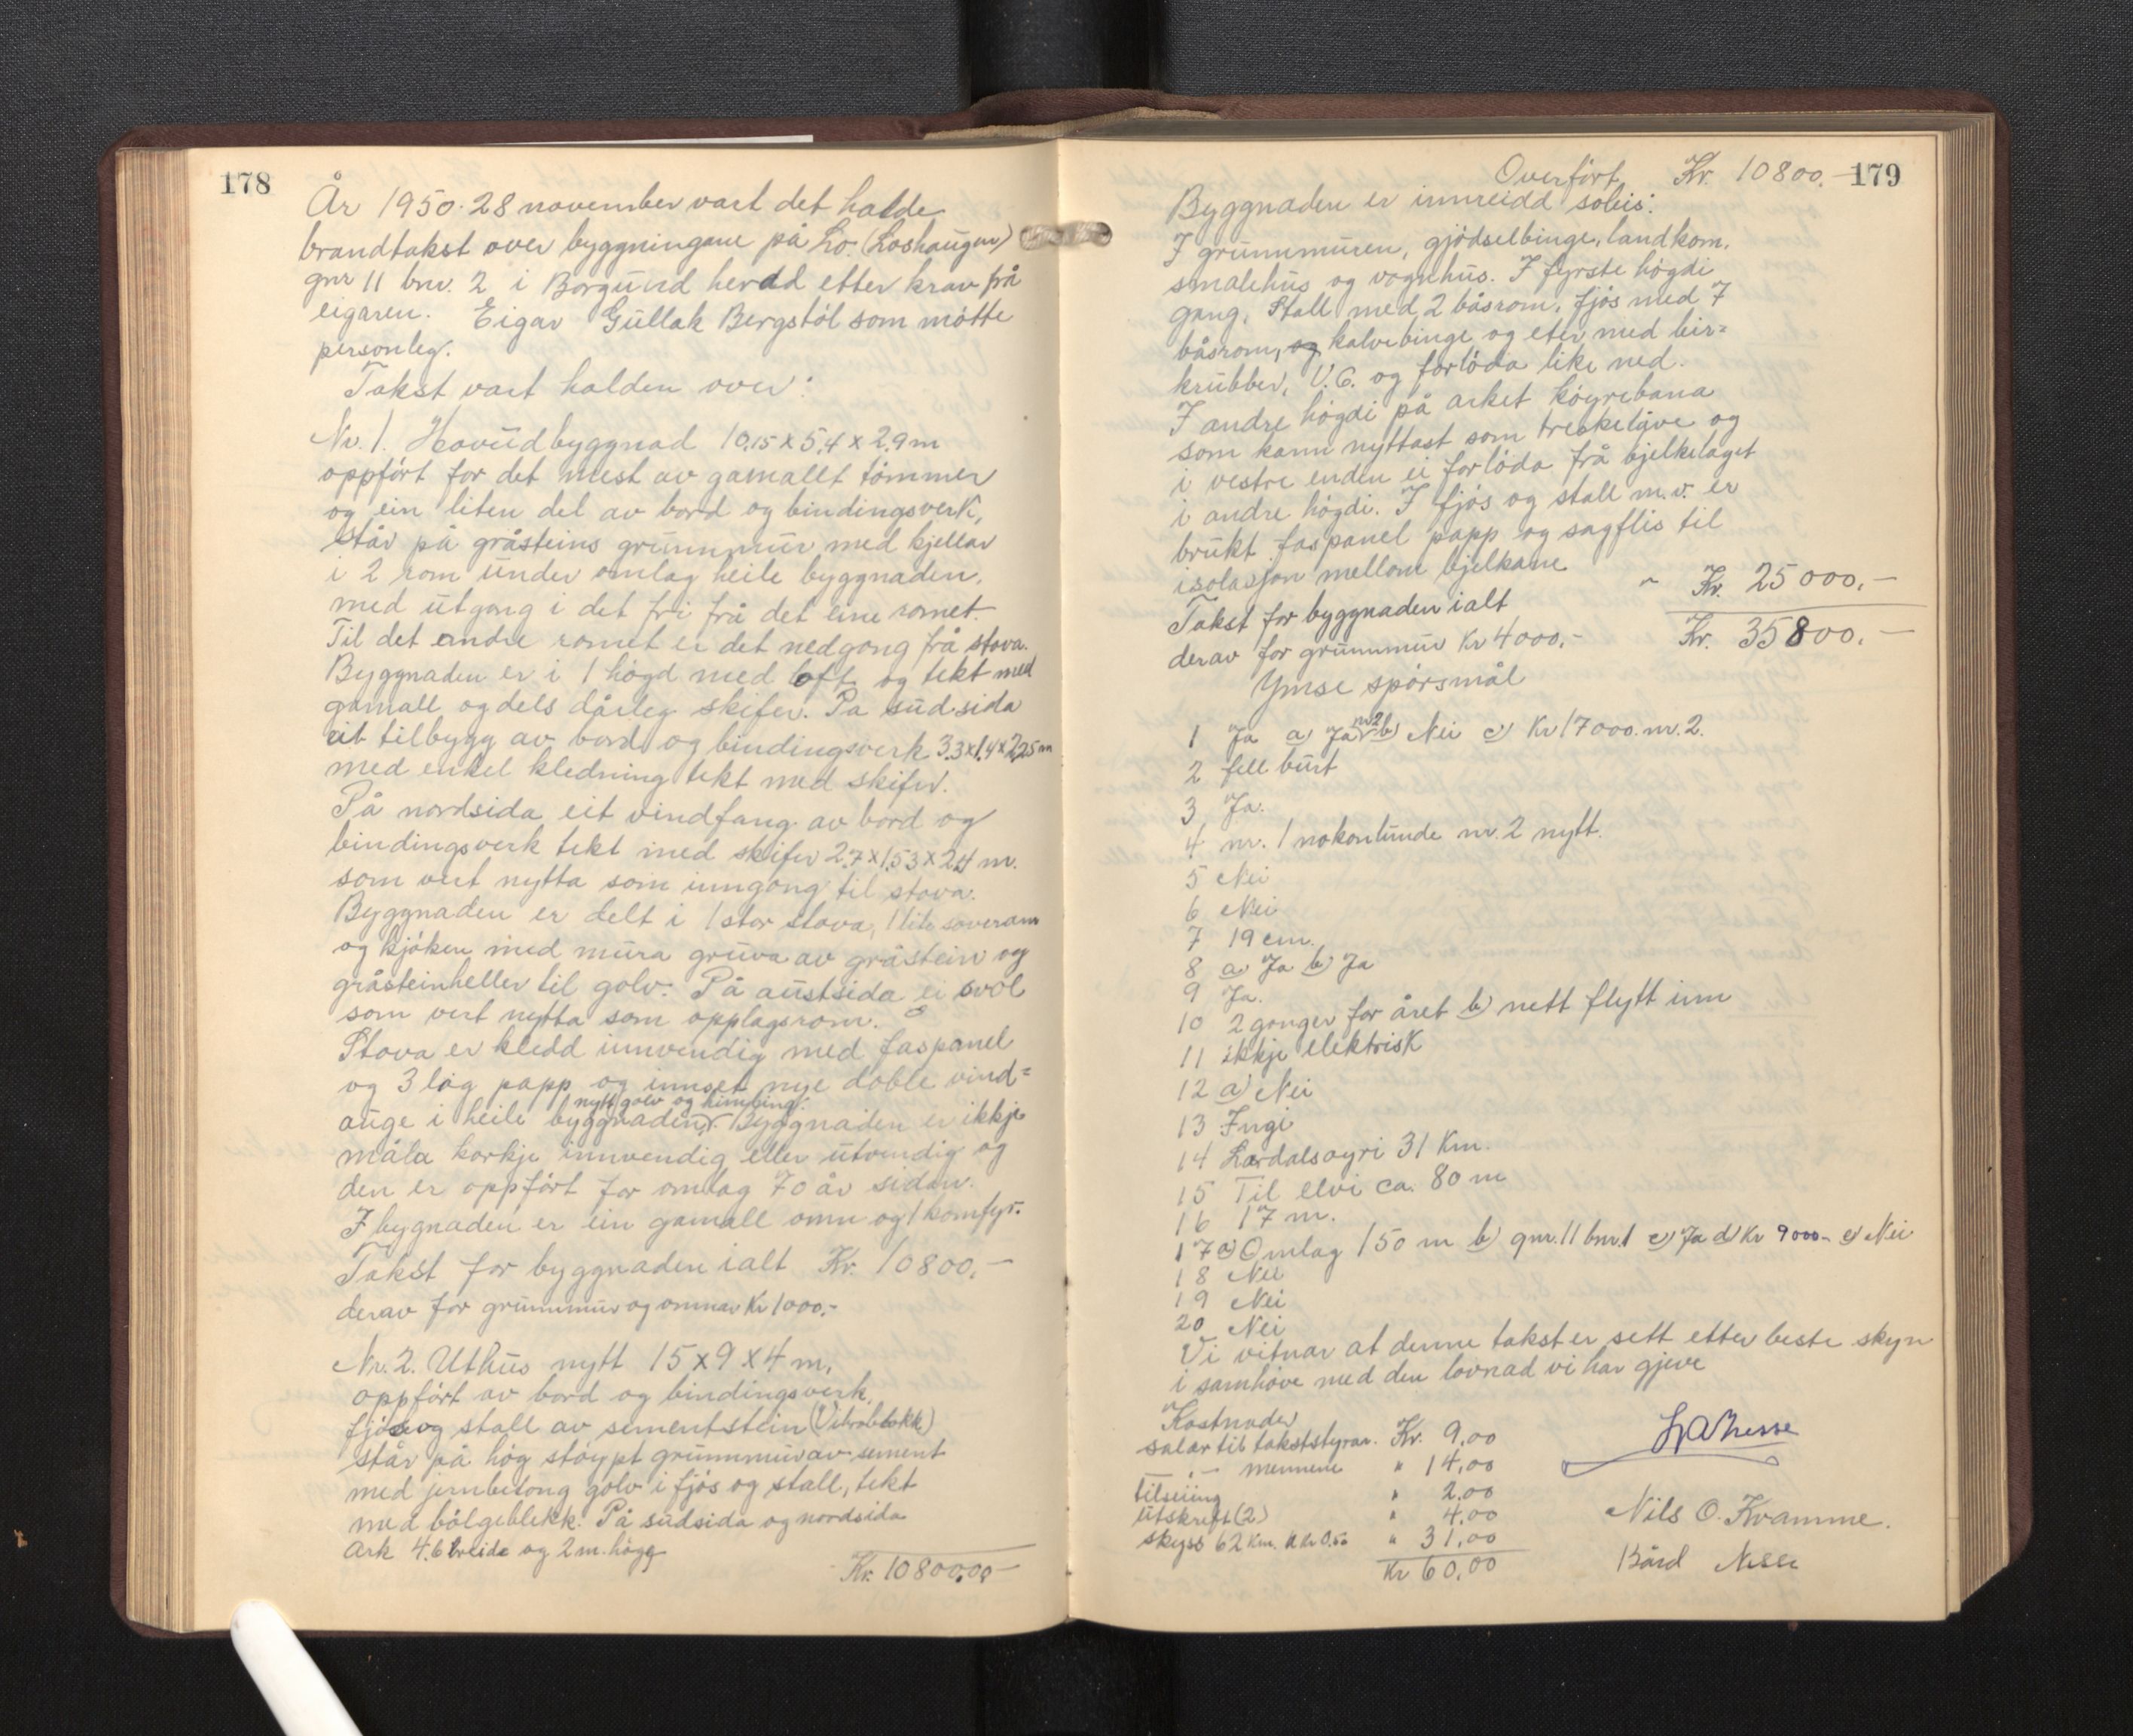 178
År 1950. 28 november vart det halde
brandtakst over byggningane på Lo (Loshaugen)
gnr 11 bnr. 2 i Borgund herad etter krav frå
eigaren. Eigar Gullak Bergstöl som møtte
personleg.
Takst vart halden over:
Nr. 1. Hovudbyggnad 10,15 x 5,4 x 2,9 m
oppført for det mest av gamallt tømmer
og ein liten del av bord og bindingsverk,
står på gråsteins grunnmur med kjellar
i 2 rom under omlag heile byggnaden,
med utgang i det fri frå det eine romet.
Til det andre romet er det nedgong frå stova.
Byggnaden er i 1 høgd med loft og tekt med
gamall og dels dårleg skifer. Pa sudsida
eit tilbygg av bord og bindingsverk 3,3x1,4x2,25 m
med enkel kledning tekt med skifer.
På nordsida eit vindfang av bord og
bindingsverk tekt med skifer 2,7 x 1,53 x 2,4 m.
som vert nytta som inngong til stova.
Byggnaden er delt i 1 stor stova, 1 lite soverom
og kjøken med mura gruva av gråstein og
gråsteinheller til golv. På austsida ei sval
som vert nytta som opplagsrom.
Stova er kledd innvendig med faspanel
og 3 lag papp og innset nye doble vind=
nytt golv og himling.
auge i heile byggnaden. Byggnaden er ikkje
måla korkje innvendig eller utvendig og
den er oppført for omlag 70 år sidan.
I bygnaden er ein gamall omn og 1 komfyr.
Takst for byggnaden ialt Kr. 10800,-
derav for grunnmur og omnar Kr 1000,-
Nr. 2. Uthus nytt 15 x 9 x 4 m,
oppført av bord og bindingsverk,
fjøs og stall av sementstein (Vibroblokk)
står på høg støypt grunnmur av sement
med jernbetong golv i fjøs og stall, tekt
med bølgeblekk. På sudsida og nordsida
Ark 4,6 breide og 2 m. høgg
Kr. 10800,00
179
Overført Kr. 10800.-
Byggnaden er innreidd soleis:
I grunnmuren, gjødselbinge, landkom.
smalehus og vognhus. I fyrste høgdi
gang, Stall med 2 båsrom, fjøs med 7
båsrom, og kalvebinge og eter med leir=
krubber, V.C. og forlöda like ned.
I andre høgdi på arket køyrebana
som kann nyttast som treskelåve og
i vestre enden ei forlöda frå bjelkelaget
i andre høgdi. I fjøs og stall m.v. er
brukt faspanel papp og sagflis til
isolasjon mellom bjelkane
Takst for byggnaden ialt " Kr. 25000,-
derav for grunnmur Kr 4000,- Kr. 35800,-
Ymse spørsmål
1 Ja a) Ja nr 2 b) Nei c) Kr 17000. nr. 2.
2 fell burt
3 Ja.
4 nr. 1 nokonlunde nr. 2 nytt.
5 Nei
6 Nei
7 19 cm.
8 a) Ja b) Ja
9 Ja.
10 2 gonger for året b) nett flytt inn
11 ikkje elektrisk
12 a) Nei
13 Ingi
14 Lærdalsøyri 31 Km.
15 Til elvi ca. 80 m
16 17 m.
17 a) Omlag 150 m b) gnr. 11 bnr. 1 c) Ja d) Kr 9000- e) Nei
18 Nei
19 Nei
20 Nei
Vi vitnar at denne takst er sett etter beste skyn
i samhøve med den lovnad vi har gjeve
Kostnader
salær til takststyrar. Kr. 9,00
—"— mennene " 14,00
tilseiing " 2,00
utskrift (2) " 4,00
skyss 62 Km. a Kr 0.50 " 31,00
Kr 60,00
Nils O. Kvamme.
Bård Nesse